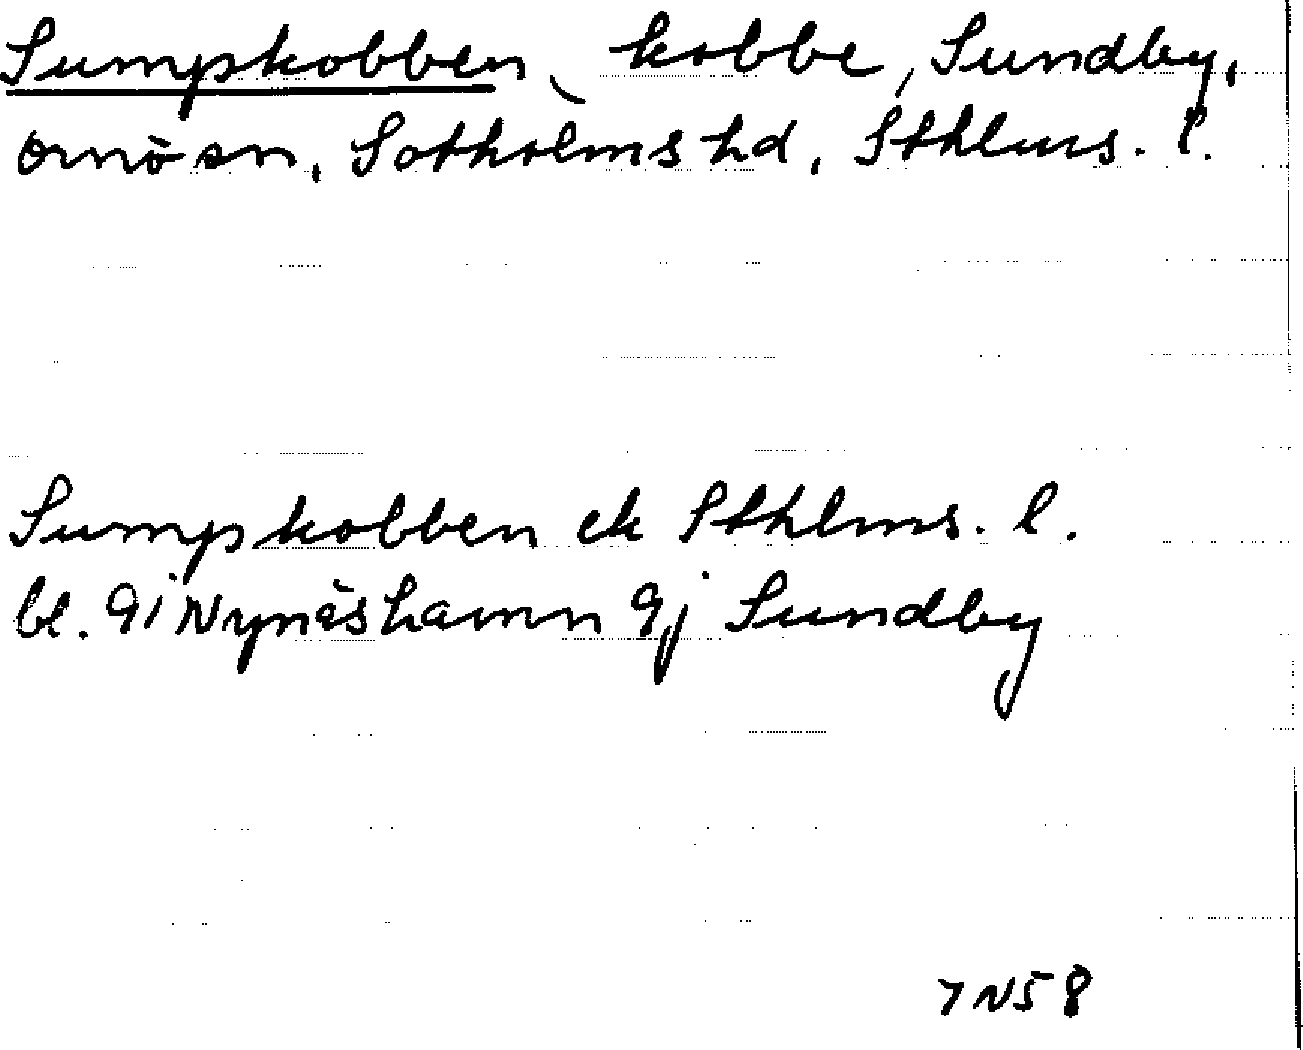 Sumpskobben, kobbe, Sundby,
Ornö sn, Sotholms hd, Sthlms. l.
Sumpskobben ek Sthlms. l.
bl. 9i Nynäshamn 9j Sundby
7 N58